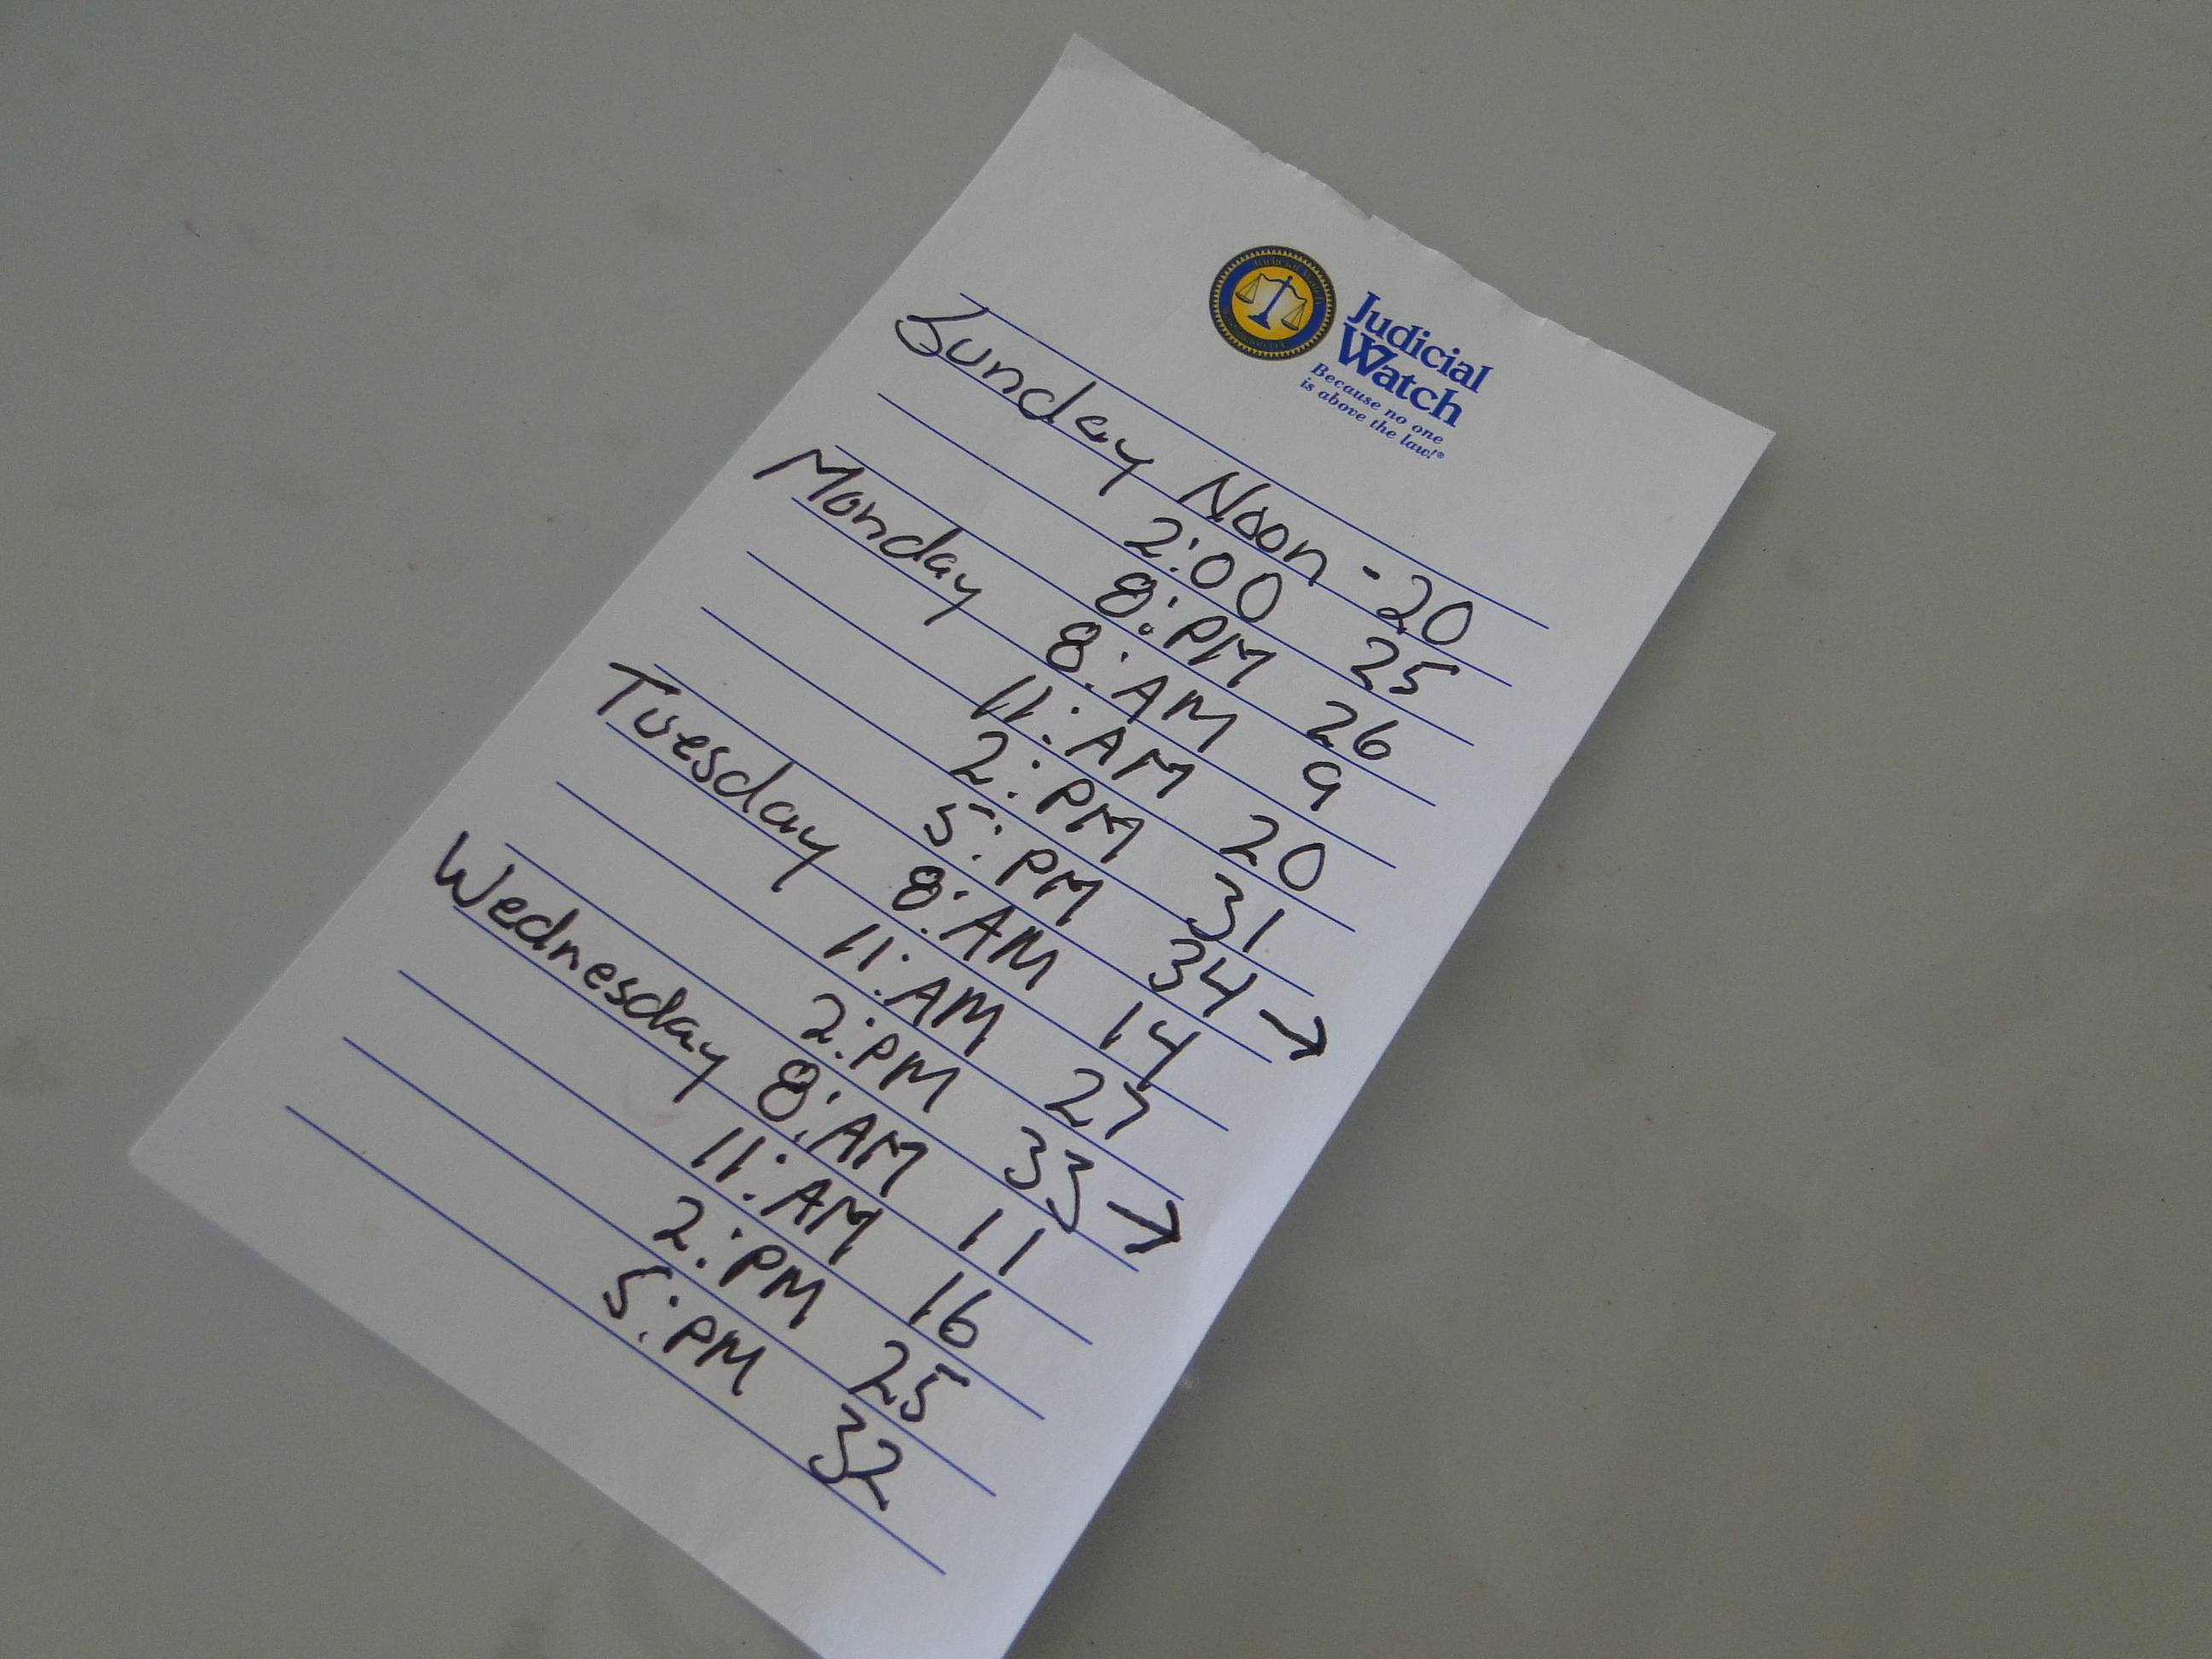 Judicial Watch
Judicial
Watch
Because no one
is above the law!®
Sunday Noon - 20
2:00 25
8:PM 26
Monday 8:AM 9
11:AM 20
2:PM 31
5:PM 34 →
Tuesday 8:AM 14
11:AM 27
2:PM 33 →
Wednesday 8:AM 11
11:AM 16
2:PM 25
5:PM 32